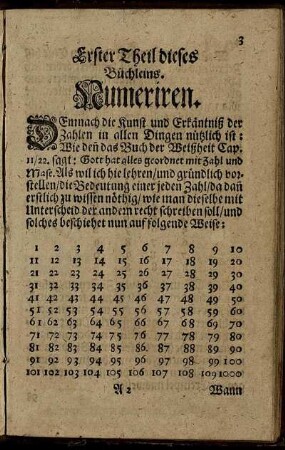 3
Erster Theil dieses
Büchleins.
Numeriren.
DEmnach die Kunst und Erkäntniß der
Zahlen in allen Dingen nützlich ist:
Wie deñ das Buch der Weißheit Cap.
11/22. sagt: Gott hat alles geordnet mit Zahl und
Mase. Als wil ich hie lehren/und gründlich vor-
stellen/die Bedeutung einer jeden Zahl/da dañ
erstlich zu wissen nöthig/wie man dieselbe mit
Unterscheid der andern recht schreiben soll/und
solches beschiehet nun auf folgende Weise:
1 2 3 4 5 6 7 8 9 10
11 12 13 14 15 16 17 18 19 20
21 22 23 24 25 26 27 28 29 30
31 32 33 34 35 36 37 38 39 40
41 42 43 44 45 46 47 48 49 50
51 52 53 54 55 56 57 58 59 60
61 62 63 64 65 66 67 68 69 70
71 72 73 74 75 76 77 78 79 80
81 82 83 84 85 86 87 88 89 90
91 92 93 94 95 96 97 98 99 100
101 102 103 104 105 106 107 108 109 1000
A 2 Wann